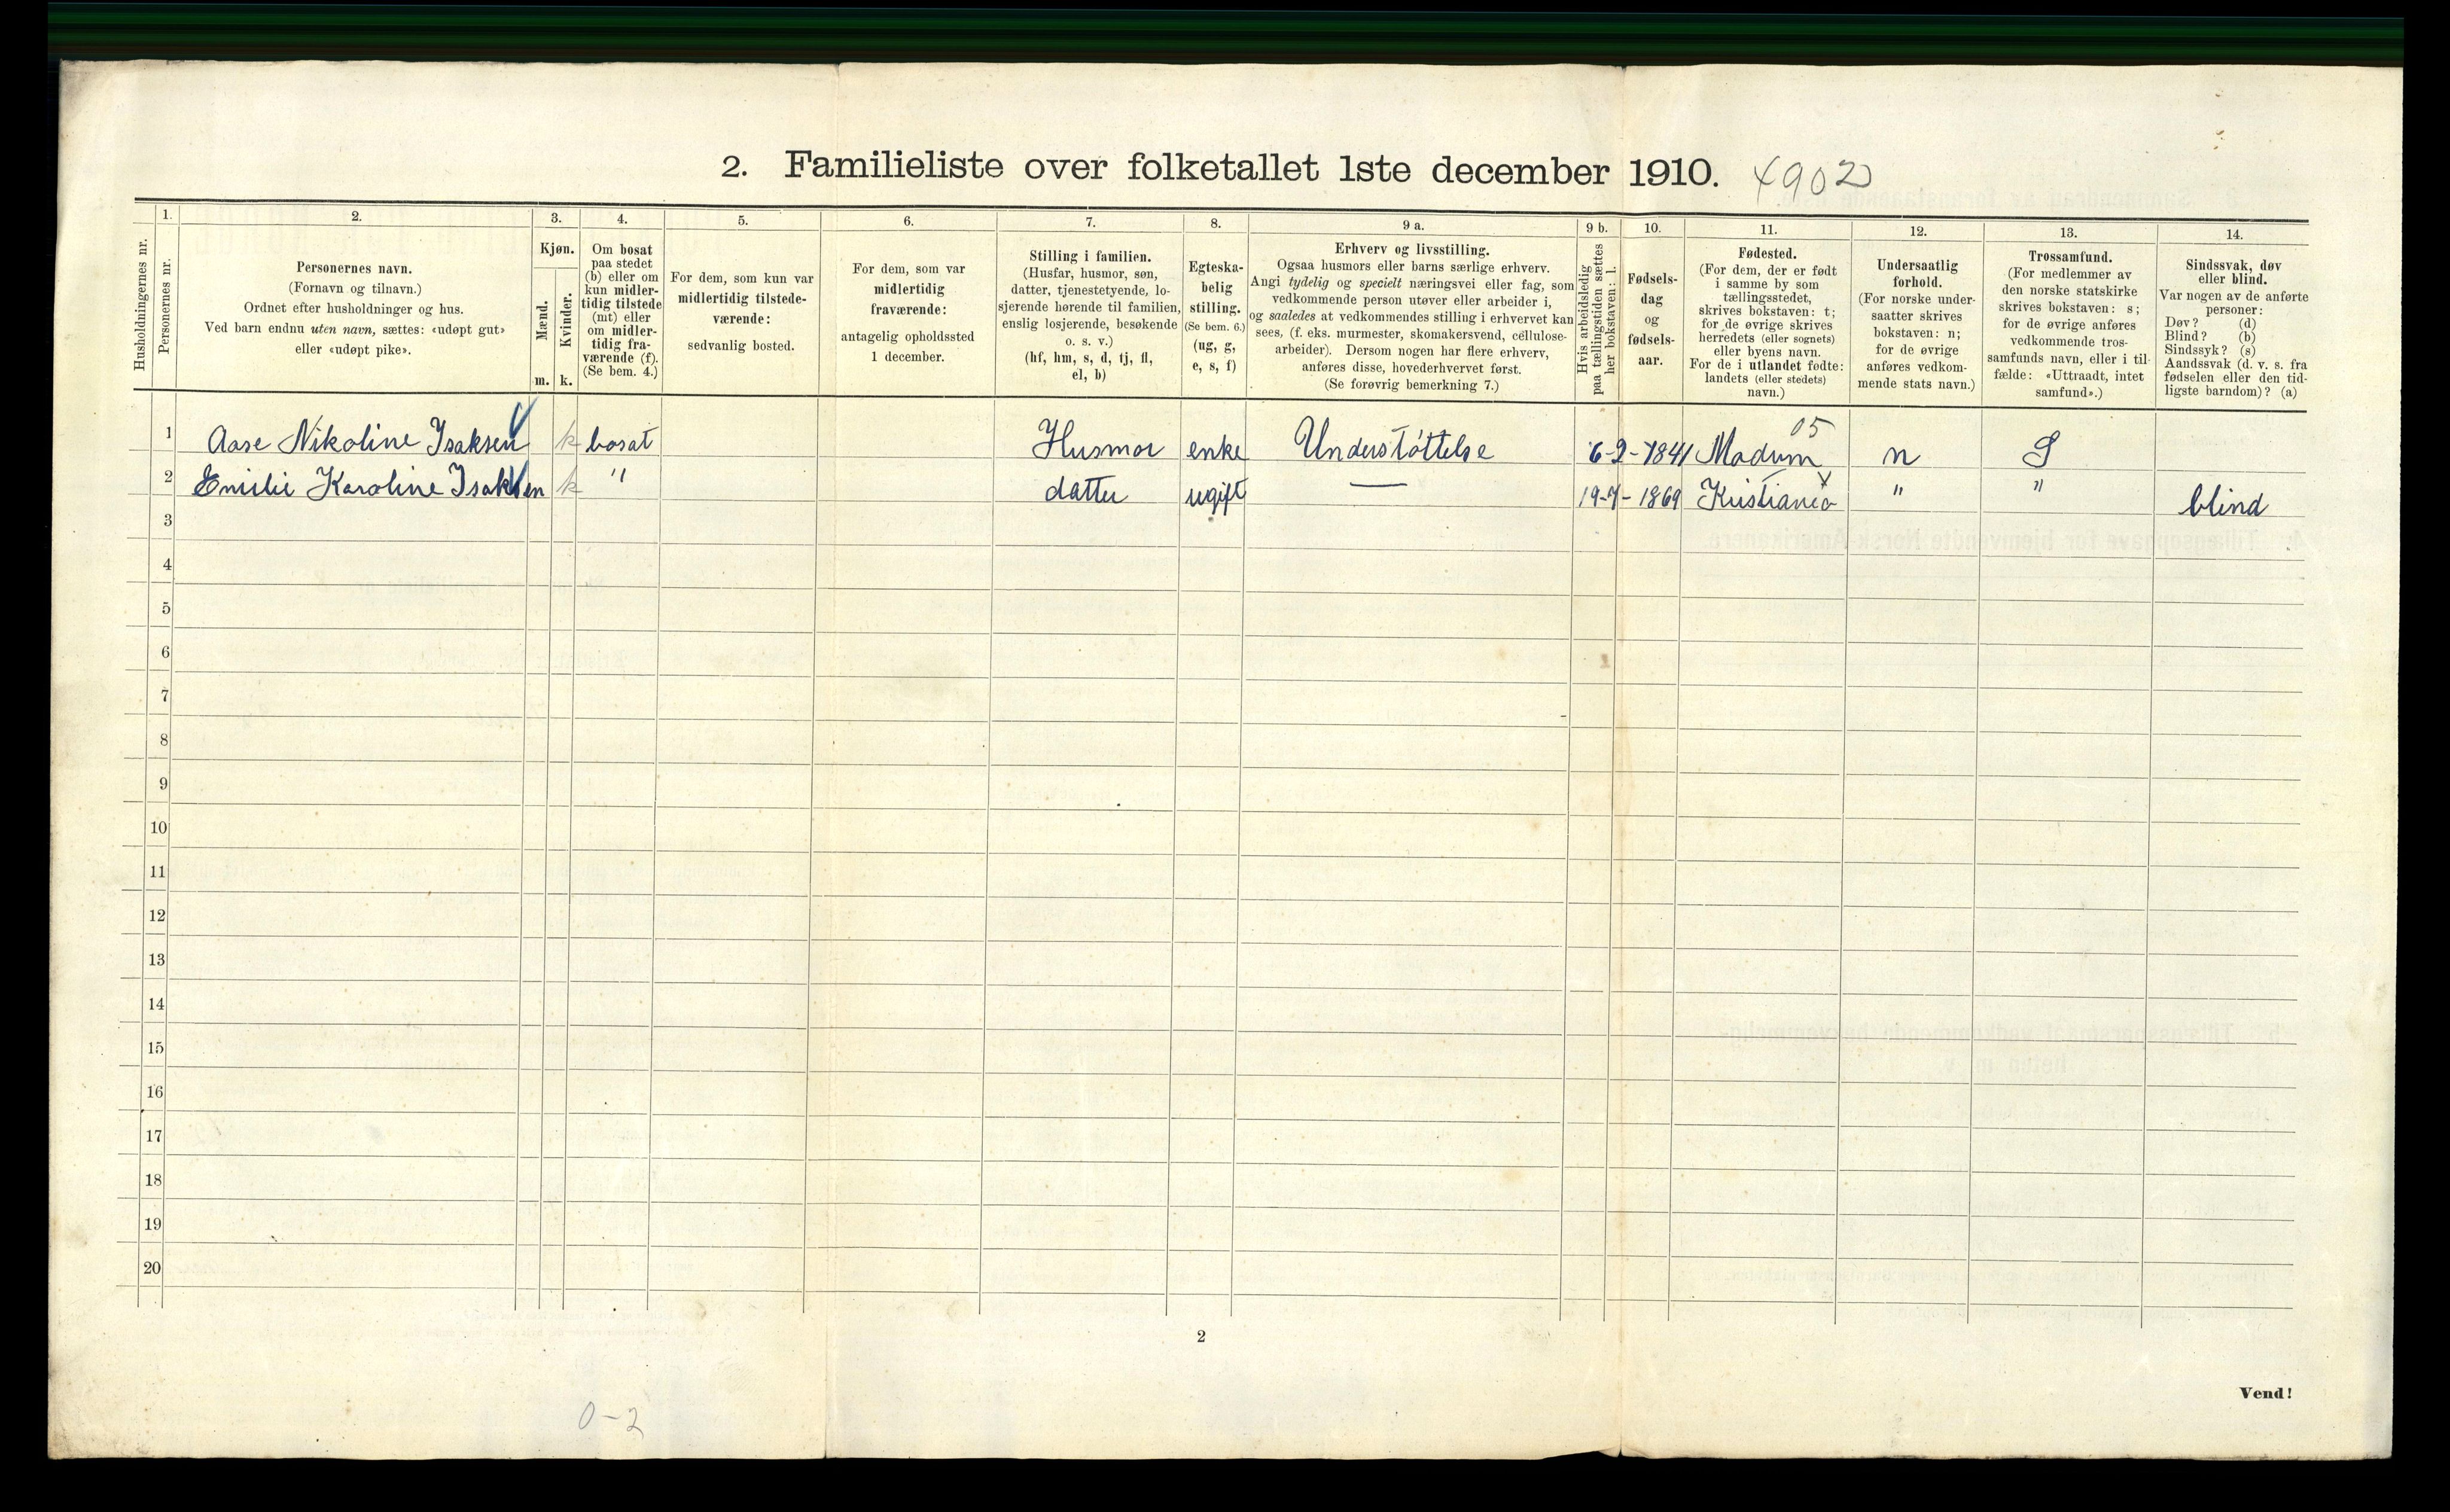 2. Familieliste over folketallet 1ste december 1910. 4902
1. 2. 3. 4. 5. 6. 7. 8. 9 a. 9 b. 10. 11. 12. 13. 14.
Husholdningernes nr.
Personernes nr.
Personernes navn.
(Fornavn og tilnavn.)
Ordnet efter husholdninger og hus.
Ved barn endnu uten navn, sættes: «udøpt gut»
eller «udøpt pike».
Kjøn.
Mænd.
Kvinder.
m. k.
Om bosat
paa stedet
(b) eller om
kun midler-
tidig tilstede
(mt) eller
om midler-
tidig fra-
værende (f).
(Se bem. 4.)
For dem, som kun var
midlertidig tilstede-
værende:
sedvanlig bosted.
For dem, som var
midlertidig
fraværende:
antagelig opholdssted
1 december.
Stilling i familien.
(Husfar, husmor, søn,
datter, tjenestetyende, lo-
sjerende hørende til familien,
enslig losjerende, besøkende
o. s. v.)
(hf, hm, s, d, tj, fl,
el, b)
Egteska-
belig
stilling.
(Se bem. 6.)
(ug, g,
e, s, f)
Erhverv og livsstilling.
Ogsaa husmors eller barns særlige erhverv.
Angi tydelig og specielt næringsvei eller fag, som
vedkommende person utøver eller arbeider i,
og saaledes at vedkommendes stilling i erhvervet kan
sees, (f. eks. murmester, skomakersvend, cellulose-
arbeider). Dersom nogen har flere erhverv,
anføres disse, hovederhvervet først.
(Se forøvrig bemerkning 7.)
Hvis arbeidsledig
paa tællingstiden sættes
her bokstaven: l.
Fødsels-
dag
og
fødsels-
aar.
Fødested.
(For dem, der er født
i samme by som
tællingsstedet,
skrives bokstaven: t;
for de øvrige skrives
herredets (eller sognets)
eller byens navn.
For de i utlandet fødte:
landets (eller stedets)
navn.)
Undersaatlig
forhold.
(For norske under-
saatter skrives
bokstaven: n;
for de øvrige
anføres vedkom-
mende stats navn.)
Trossamfund.
(For medlemmer av
den norske statskirke
skrives bokstaven: s;
for de øvrige anføres
vedkommende tros-
samfunds navn, eller i til-
fælde: «Uttraadt, intet
samfund».)
Sindssvak, døv
eller blind.
Var nogen av de anførte
personer:
Døv? (d)
Blind? (b)
Sindssyk? (s)
Aandssvak (d. v. s. fra
fødselen eller den tid-
ligste barndom)? (a)
05
1 Aase Nikoline Isaksen k bosat Husmor enke Understøttelse 6-2-1841 Modum n S
2 Emilie Karoline Isaksen k " datter ugift — 19-7-1869 Kristiania " " blind
3
4
5
6
7
8
9
10
11
12
13
14
15
16
17
18
19
20
2
Vend!
0-2